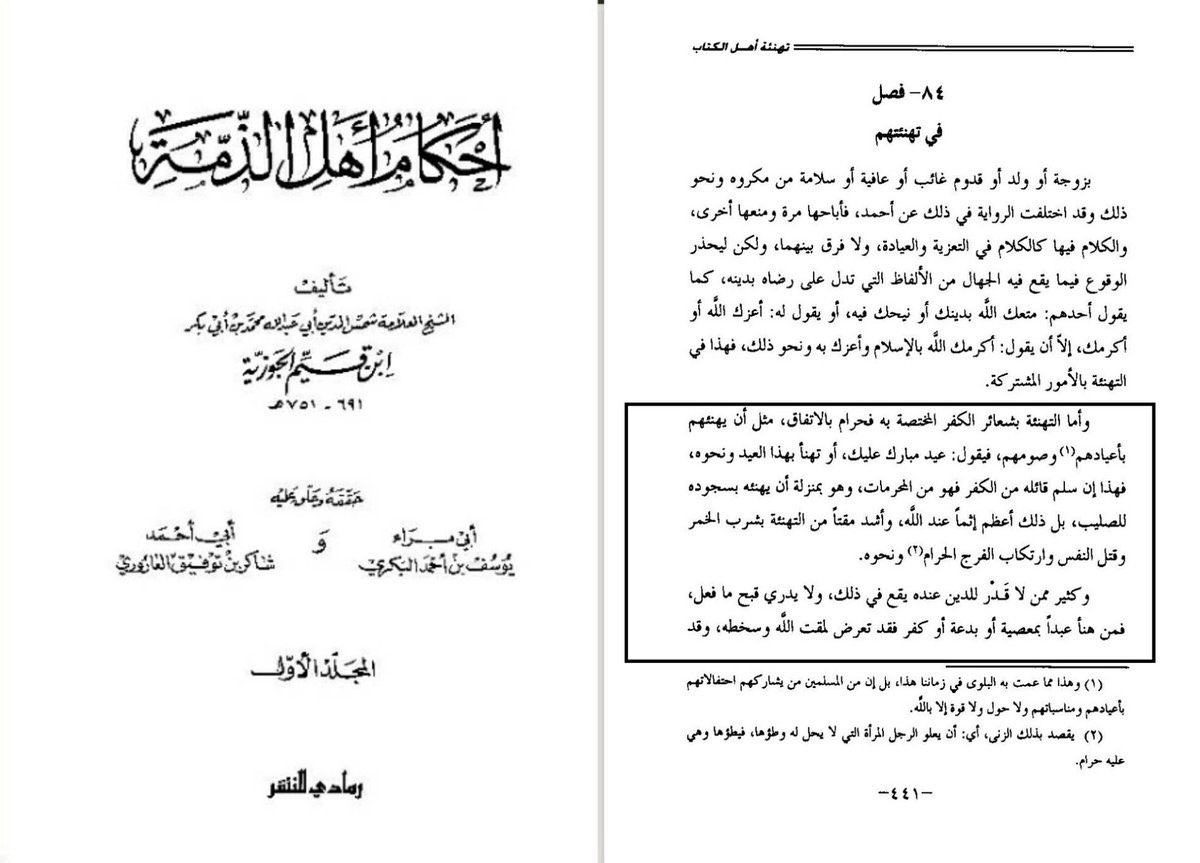 أحكام أهل الذمة
تأليف
الشيخ العلامة شمس الدين أبي عبد الله محمد بن أبي بكر
ابن قيم الجوزية
٦٩١ - ٧٥١ هـ
حققه وعلق عليه
أبي براء
يوسف بن أحمد البكري
و
أبي أحمد
شاكر بن توفيق العاروري
المجلد الأول
رمادي للنشر
تهنئة أهل الكتاب
٨٤- فصل
في تهنئتهم
بزوجة أو ولد أو قدوم غائب أو عافية أو سلامة من مكروه ونحو
ذلك وقد اختلفت الرواية في ذلك عن أحمد، فأباحها مرة ومنعها أخرى،
والكلام فيها كالكلام في التعزية والعيادة، ولا فرق بينهما، ولكن ليحذر
الوقوع فيما يقع فيه الجهال من الألفاظ التي تدل على رضاه بدينه، كما
يقول أحدهم: متعك اللَّه بدينك أو نيحك فيه، أو يقول له: أعزك اللَّه أو
أكرمك، إلاّ أن يقول: أكرمك اللَّه بالإسلام وأعزك به ونحو ذلك، فهذا في
التهنئة بالأمور المشتركة.
وأما التهنئة بشعائر الكفر المختصة به فحرام بالاتفاق، مثل أن يهنئهم
بأعيادهم(١) وصومهم، فيقول: عيد مبارك عليك، أو تهنأ بهذا العيد ونحوه،
فهذا إن سلم قائله من الكفر فهو من المحرمات، وهو بمنزلة أن يهنئه بسجوده
للصليب، بل ذلك أعظم إثماً عند اللَّه، وأشد مقتاً من التهنئة بشرب الخمر
وقتل النفس وارتكاب الفرج الحرام(٢) ونحوه.
وكثير ممن لا قَدْر للدين عنده يقع في ذلك، ولا يدري قبح ما فعل،
فمن هنأ عبداً بمعصية أو بدعة أو كفر فقد تعرض لمقت اللَّه وسخطه، وقد
(١) وهذا مما عمت به البلوى في زماننا هذا، بل إن من المسلمين من يشاركهم احتفالاتهم
بأعيادهم ومناسباتهم ولا حول ولا قوة إلا باللَّه.
(٢) يقصد بذلك الزنى، أي: أن يعلو الرجل المرأة التي لا يحل له وطؤها، فيطؤها وهي
عليه حرام.
-٤٤١-